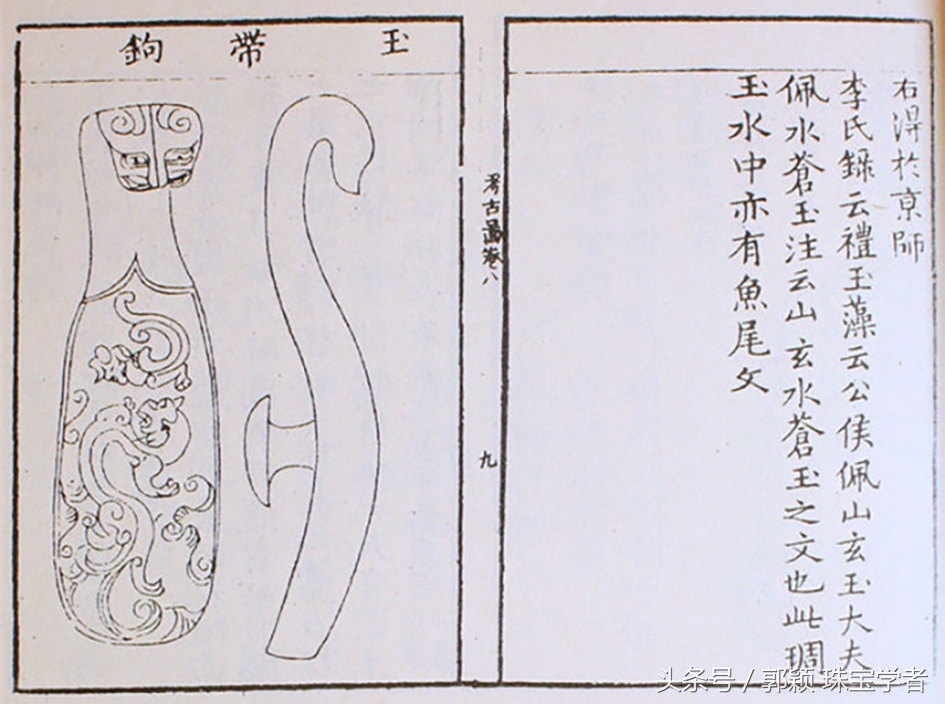 右淂於京師
李氏錄云禮玉藻云公侯佩山玄玉大夫
佩水蒼玉注云山玄水蒼玉之文也此琱
玉水中亦有魚尾文
考古圖卷八
九
玉帶鉤
头条号 / 郭颖 珠宝学者